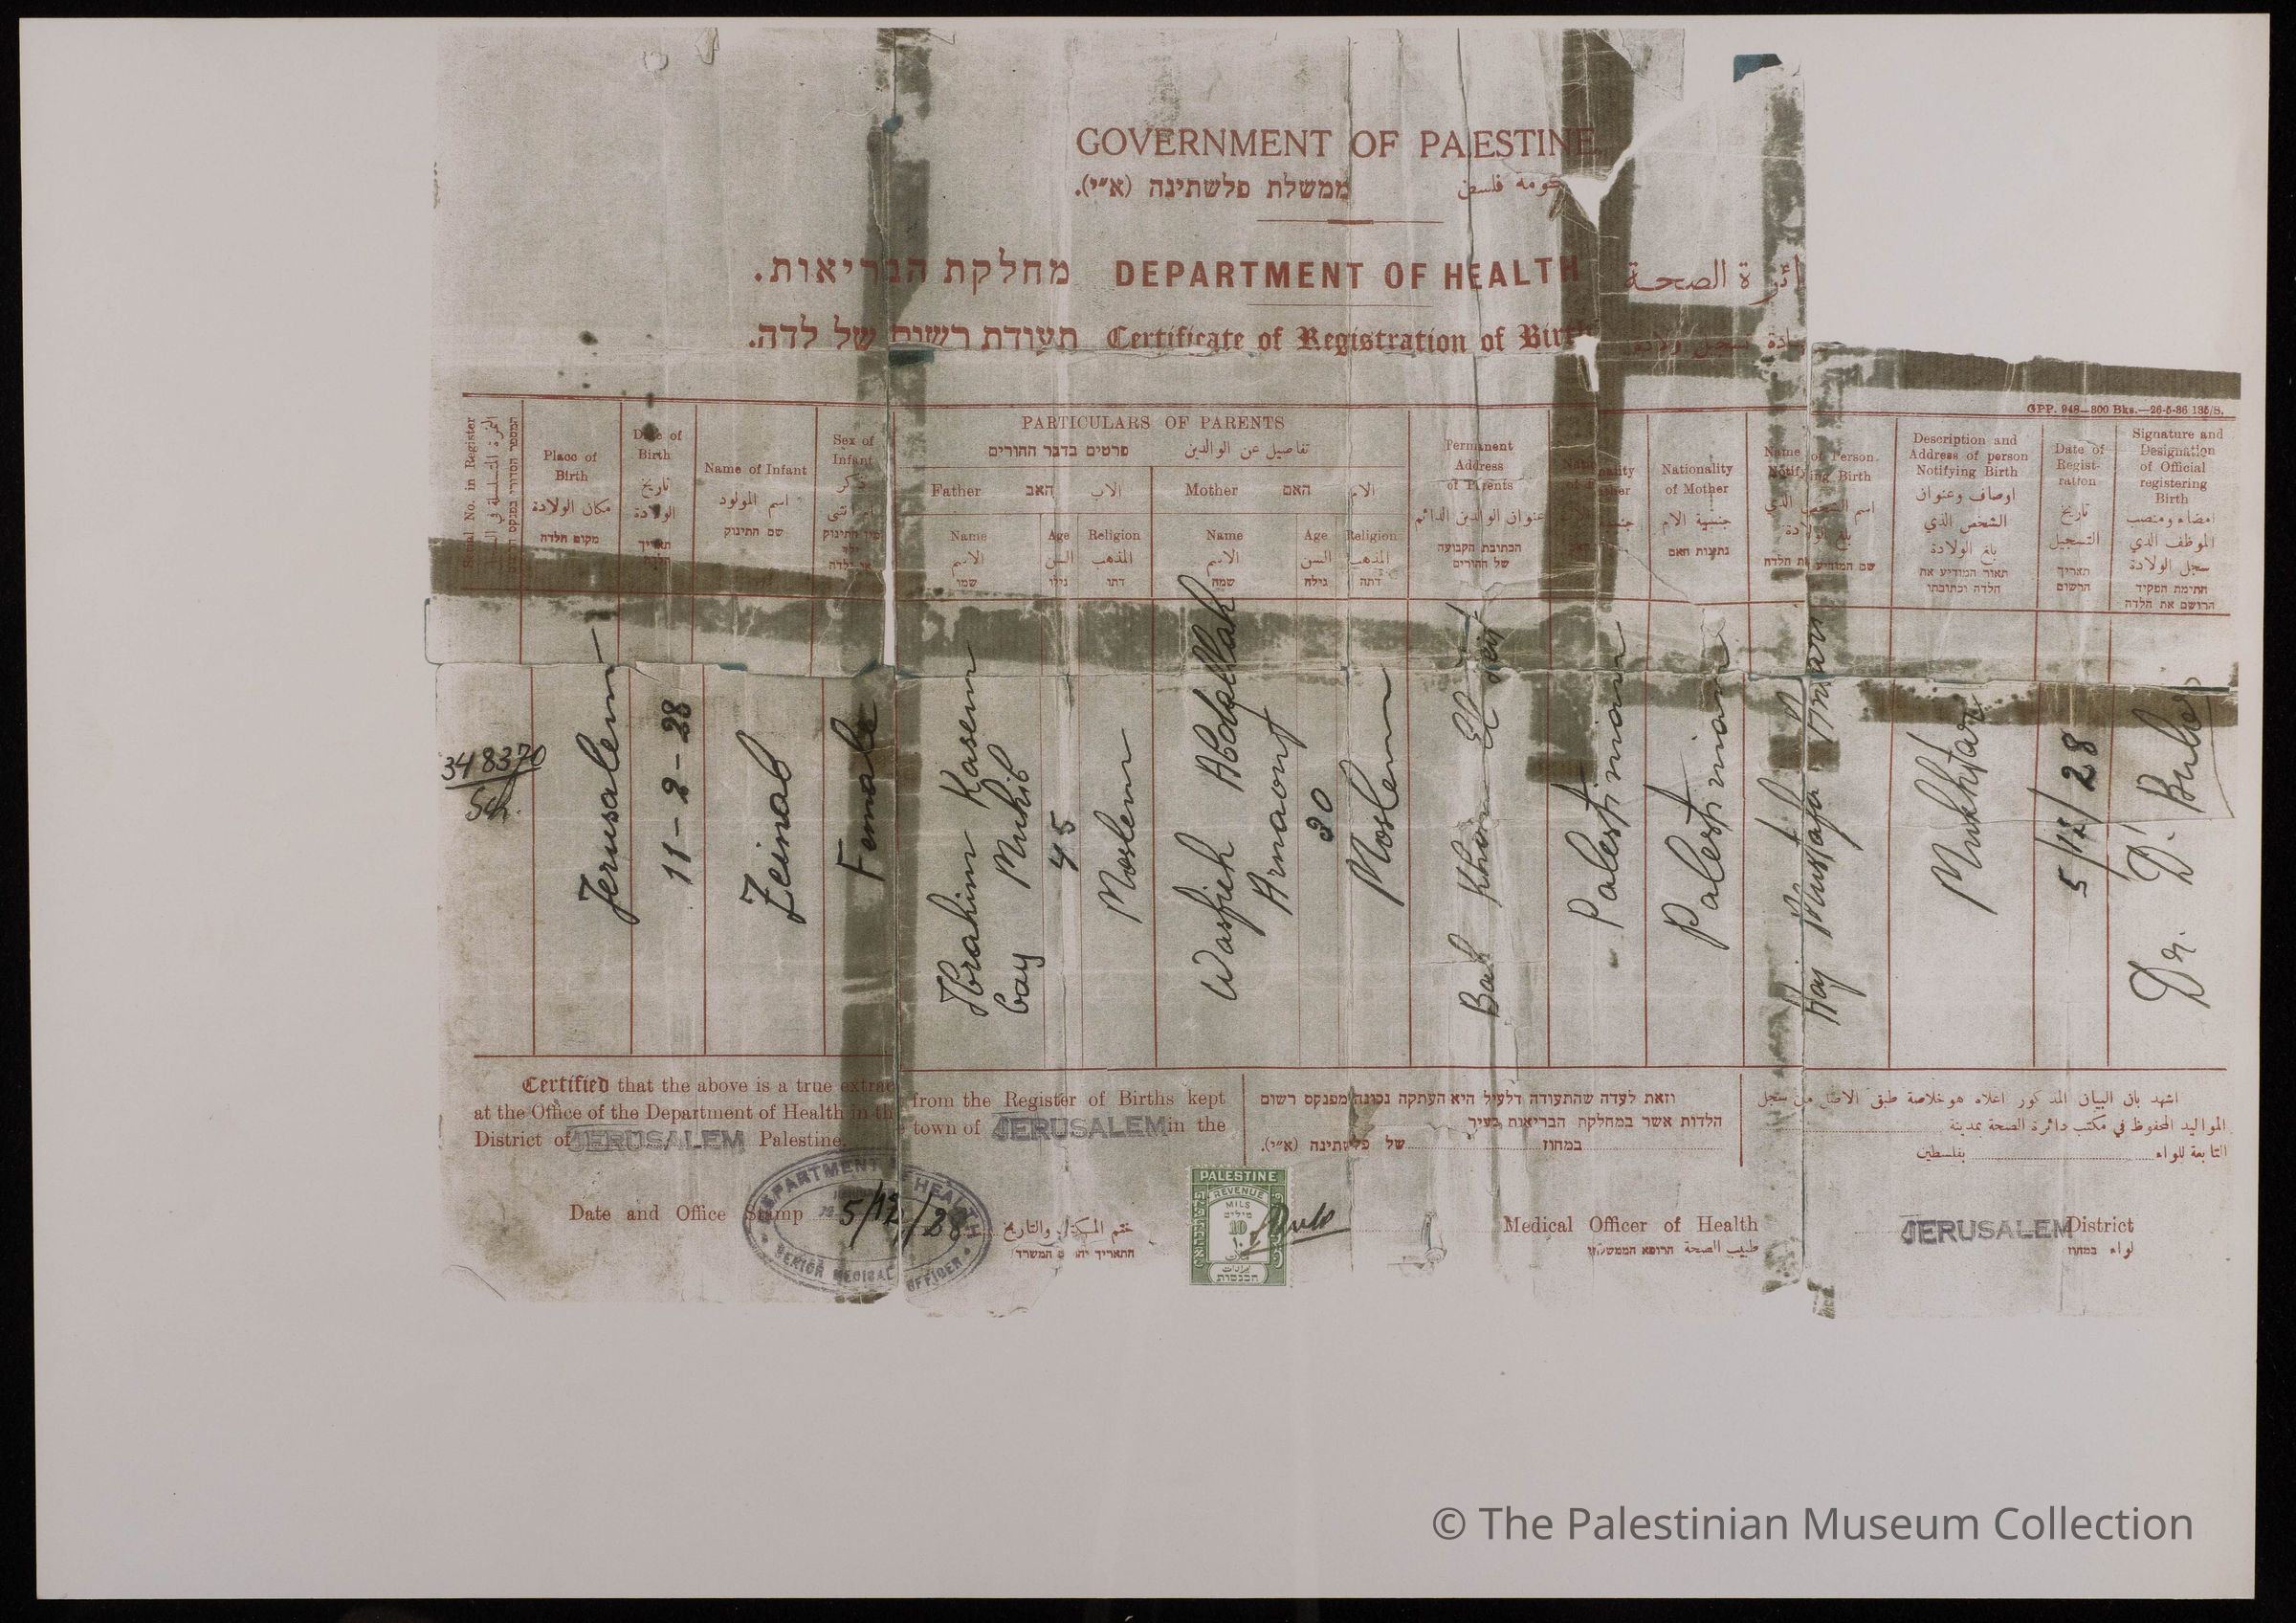 GOVERNMENT OF PALESTINE
ממשלת פלשתינה (א״י).
DEPARTMENT OF HEALTH
מחלקת הבריאות.
الصحة
Certificate of Registration of Birth
תעודת רשום של לדה.
GPP. 948—800 Bks.—26-5-36 135/S.
Serial No. in Register
Place of Birth
مكان الولادة
מקום הלדה
Date of Birth
تاريخ الولادة
תאריך הלדה
Name of Infant
اسم المولود
שם התינוק
Sex of Infant
PARTICULARS OF PARENTS
פרטים בדבר ההורים
تفاصيل عن الوالدين
Father האב الاب
Mother האם الام
Name الاسم שמו
Age السن גילו
Religion المذهب דתו
Name الاسم שמה
Age السن גילה
Religion المذهب דתה
Permanent Address of Parents
عنوان الوالدين الدائم
הכתובת הקבועה של ההורים
Nationality of Father
Nationality of Mother
جنسية الام
נתינות האם
Name of Person Notifying Birth
اسم الشخص الذي بلغ الولادة
שם המודיע את הלדה
Description and Address of person Notifying Birth
اوصاف وعنوان الشخص الذي بلغ الولادة
תאור המודיע את הלדה וכתובתו
Date of Registration
تاريخ التسجيل
תאריך הרשום
Signature and Designation of Official registering Birth
امضاء ومنصب الموظف الذي سجل الولادة
חתימת הפקיד הרושם את הלדה
348370
Sch.
Jerusalem
11-2-28
Zeinab
Female
Ibrahim Kasem
bay Muhib
45
Moslem
Wasfieh Abdallah
Arnaout
30
Moslem
Bab Khan El Zeit
Palestinian
Palestinian
Haj Mustafa
Mukhtar
5/12/28
Dr. D.
Certified that the above is a true extract from the Register of Births kept
at the Office of the Department of Health in the town of JERUSALEM in the
District of JERUSALEM Palestine.
וזאת לעדה שהתעודה דלעיל היא העתקה נכונה מפנקס רשום
הלדות אשר במחלקת הבריאות בעיר
במחוז של פלשתינה (א״י).
اشهد بان البيان المذكور اعلاه هو خلاصة طبق الاصل من سجل
المواليد المحفوظ في مكتب دائرة الصحة بمدينة
التابعة للواء بفلسطين
Date and Office Stamp 5/12/28
DEPARTMENT OF HEALTH
SENIOR MEDICAL OFFICER
PALESTINE
REVENUE
MILS
מילים
10
١٠
ايرادات
הכנסות
Medical Officer of Health
طبيب الصحة
JERUSALEM District
لواء במחוז
© The Palestinian Museum Collection